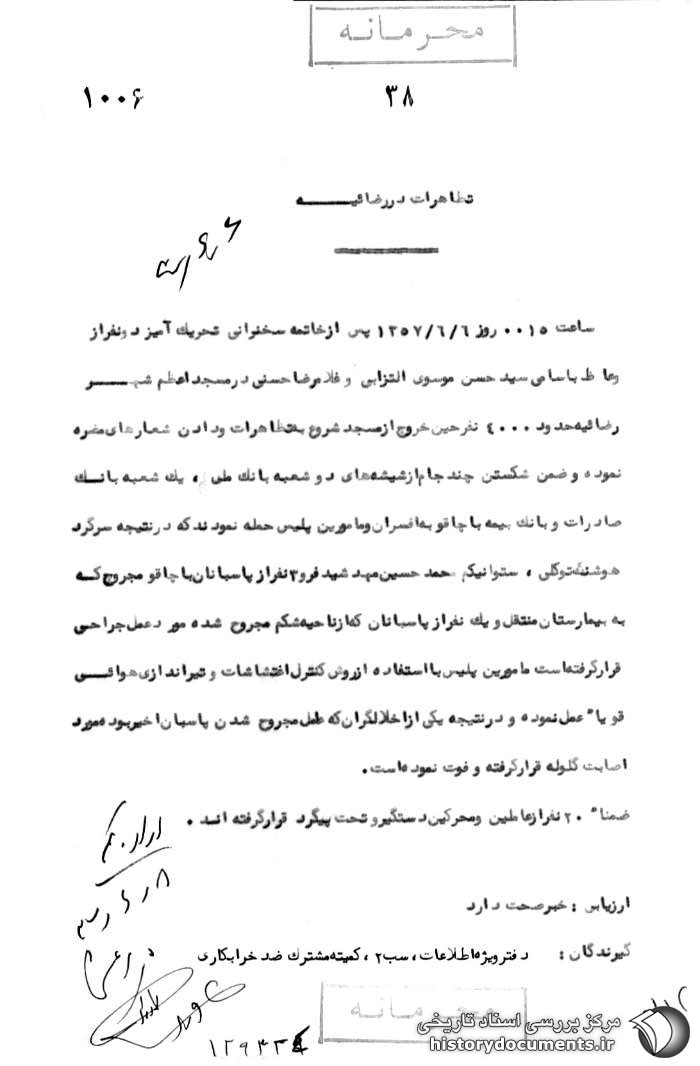 محرمانه
۳۸
۱۰۰۶
تظاهرات در رضائیـــــه
ساعت ۰۰۱۵ روز ۱۳۵۷/۶/۶ پس از خاتمه سخنرانی تحریک آمیز دو نفر از
وعاظ باسامی سید حسن موسوی التزابی و غلامرضا حسنی در مسجد اعظم شهـــر
رضائیه حدود ۴۰۰۰ نفر حین خروج از مسجد شروع به تظاهرات و دادن شعارهای مضره
نموده و ضمن شکستن چند جام از شیشه‌های دو شعبه بانک ملی، یک شعبه بانک
صادرات و بانک بیمه با چاقو به افسران و مامورین پلیس حمله نمودند که در نتیجه سرگرد
هوشنگ توکلی، ستوانیکم محمد حسین مهدشید فر و ۳ نفر از پاسبانان با چاقو مجروح که
به بیمارستان منتقل و یک نفر از پاسبانان که از ناحیه شکم مجروح شده مورد عمل جراحی
قرار گرفته است مامورین پلیس با استفاده از روش کنترل اغتشاشات و تیراندازی هوائی
قویا" عمل نموده و در نتیجه یکی از اخلالگران که عامل مجروح شدن پاسبان اخیر بوده مورد
اصابت گلوله قرار گرفته و فوت نموده است.
ضمنا" ۲۰ نفر از عاملین و محرکین دستگیر و تحت پیگرد قرار گرفته اند.
ارزیابی: خبر صحت دارد
گیرندگان: دفتر ویژه اطلاعات، سب ۲، کمیته مشترک ضد خرابکاری
محرمانه
مرکز بررسی اسناد تاریخی
historydocuments.ir